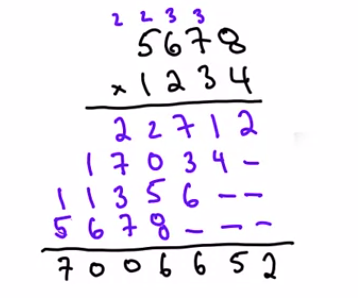 2 2 3 3
5678
× 1234
22712
17034 -
11356 - -
5678 - - -
7006652